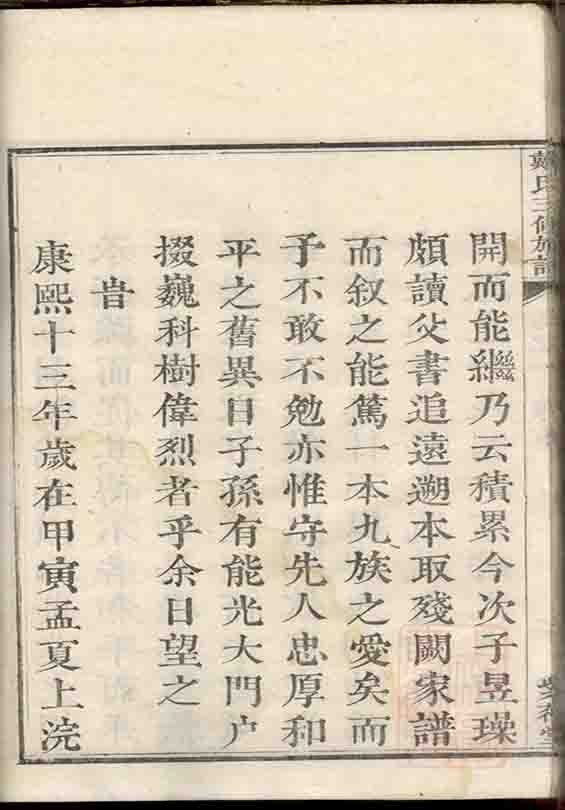 開而能繼乃云積累今次子昱璪
頗讀父書追遠遡本取殘闕家譜
而叙之能篤一本九族之愛矣而
予不敢不勉亦惟守先人忠厚和
平之舊異日子孫有能光大門户
掇巍科樹偉烈者乎余日望之
旹
康熙十三年歲在甲寅孟夏上浣